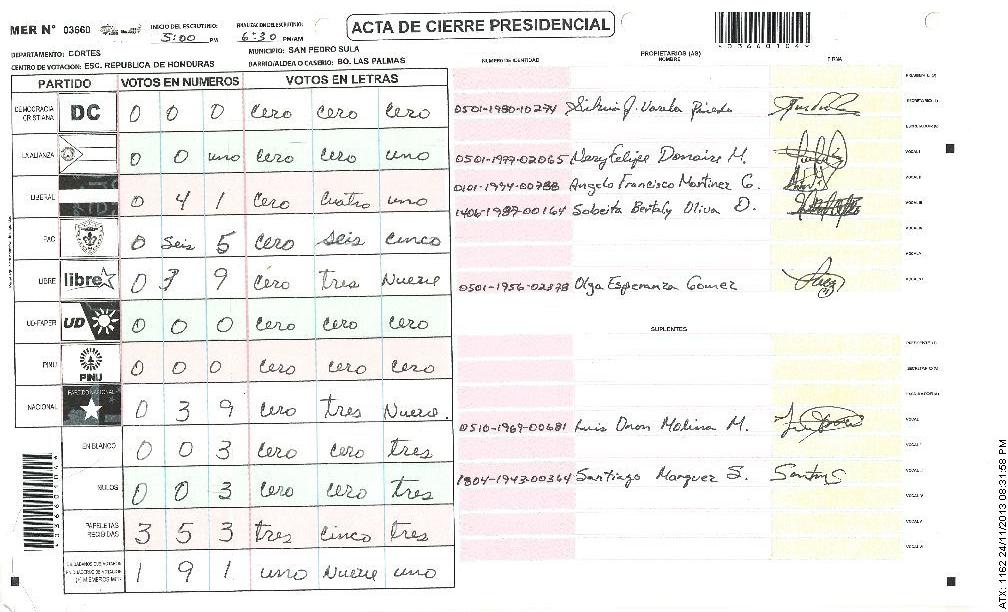 MER N° 03660
INICIO DEL ESCRUTINIO: 5:00 PM
FINALIZACION DEL ESCRUTINIO: 6:30 PM/AM
ACTA DE CIERRE PRESIDENCIAL
DEPARTAMENTO: CORTES
MUNICIPIO: SAN PEDRO SULA
CENTRO DE VOTACION: ESC. REPUBLICA DE HONDURAS
BARRIO/ALDEA O CASERIO: BO. LAS PALMAS
NUMERO DE IDENTIDAD
PROPIETARIOS (AS)
NOMBRE
FIRMA
PARTIDO VOTOS EN NUMEROS VOTOS EN LETRAS
DEMOCRACIA CRISTIANA DC 0 0 0 cero cero cero
ALIANZA 0 0 uno cero cero uno
LIBERAL 0 4 1 cero cuatro uno
PAC 0 seis 5 cero seis cinco
LIBRE libre 0 3 9 cero tres Nueve
UD-FAPER UD 0 0 0 cero cero cero
PINU PINU 0 0 0 cero cero cero
NACIONAL PARTIDO NACIONAL 0 3 9 cero tres Nueve.
EN BLANCO 0 0 3 cero cero tres
NULOS 0 0 3 cero cero tres
PAPELETAS RECIBIDAS 3 5 3 tres cinco tres
1 9 1 uno Nueve uno
0501-1980-10274
0501-1977-02065 Mary Felipe Donaire M.
0101-1994-00788 Angelo Francisco Martinez G.
1406-1987-00164 Sobeita Bertaly Oliva D.
0501-1956-02378 Olga Esperanza Gomez
SUPLENTES
0510-1969-00681 Luis Doron Molina M.
1804-1943-00364 Santiago Marquez S. Santos
03660104
ATX: 1162 24/11/2013 08:31:58 PM